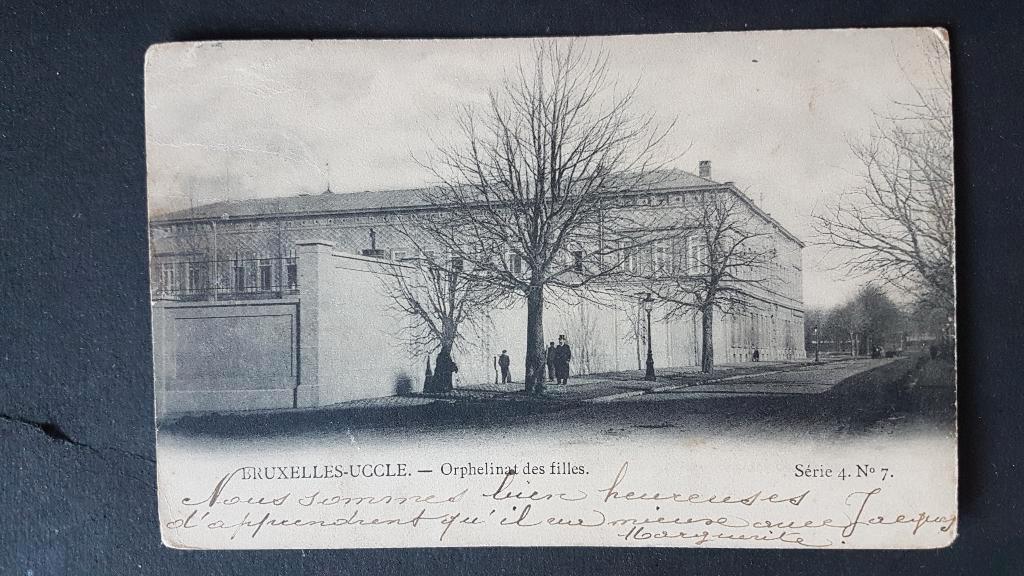 BRUXELLES-UCCLE. — Orphelinat des filles.
Série 4. Nº 7.
Nous sommes bien heureuses
d'apprendrent qu'il va mieuse avec Jacques
Marguerite.